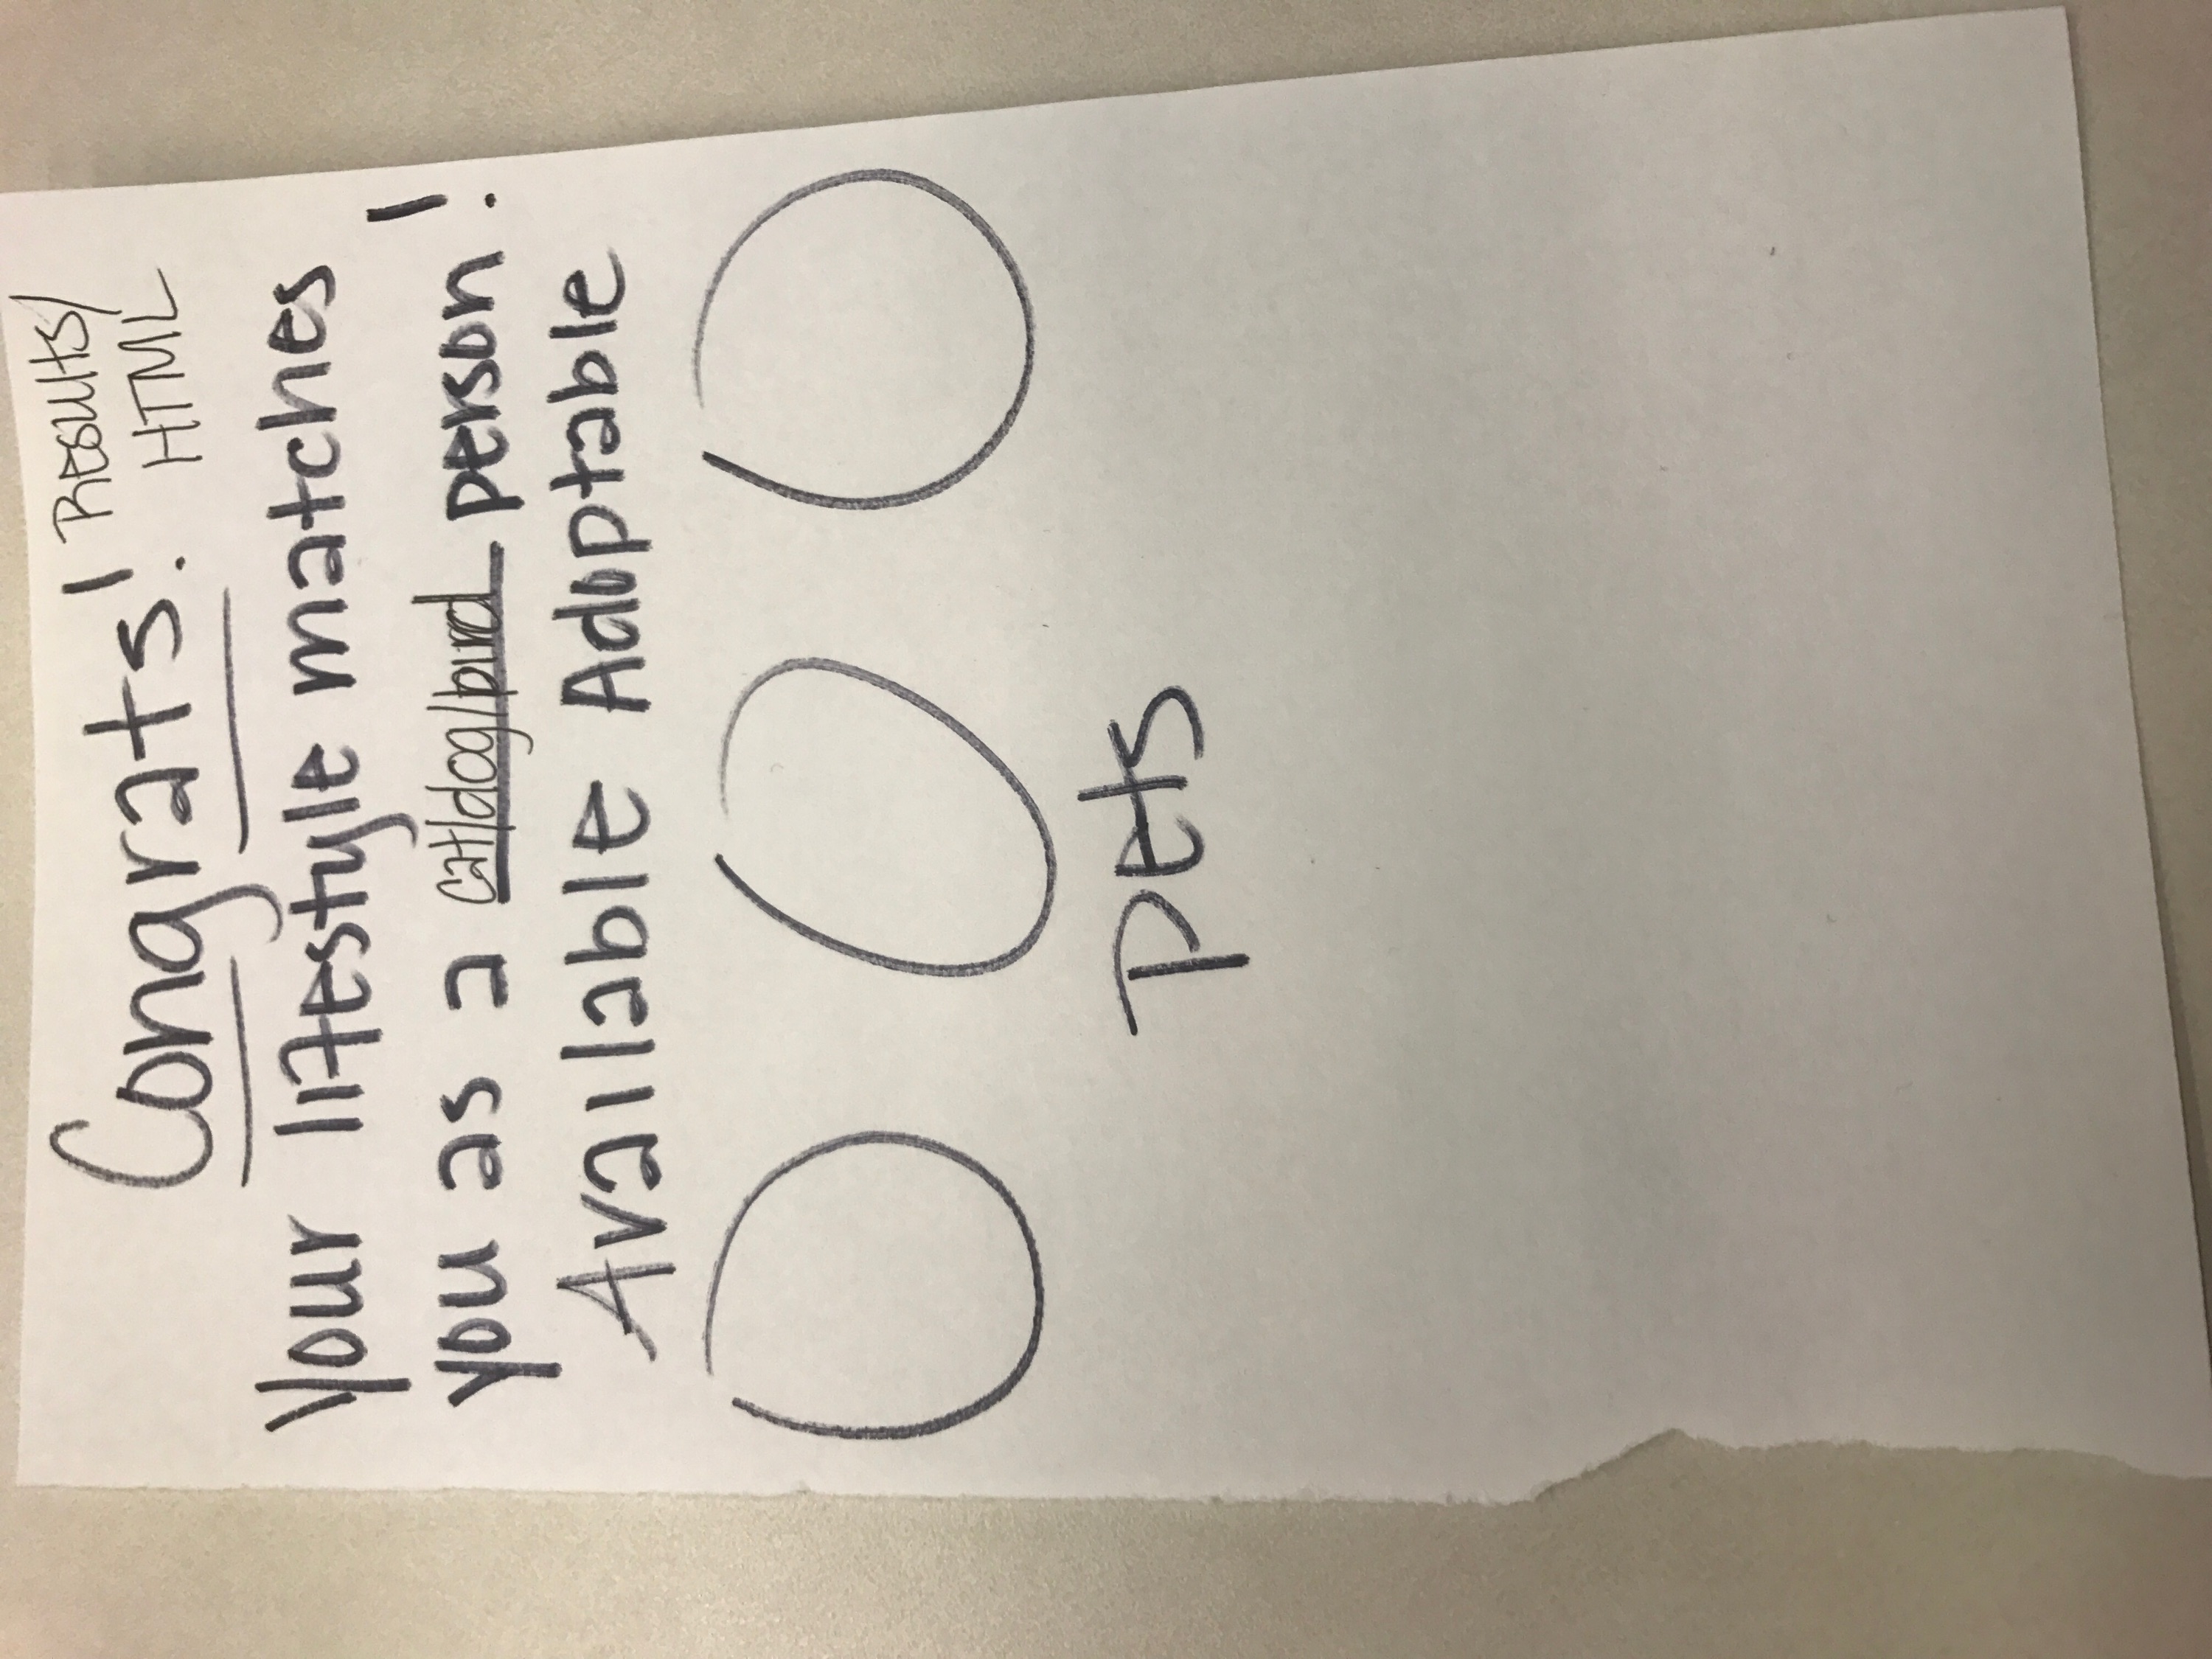 Congrats!
Results/
HTML
Your lifestyle matches
you as a cat/dog/bird person!
Available Adoptable
pets